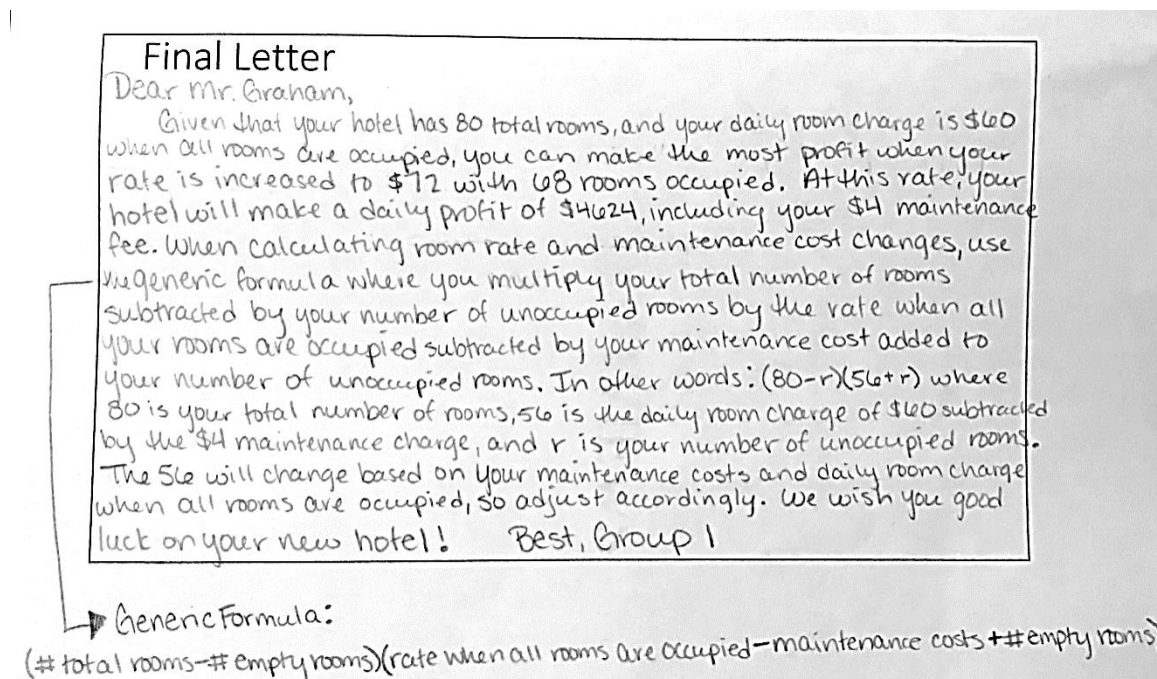 Final Letter
Dear Mr. Graham,
Given that your hotel has 80 total rooms, and your daily room charge is $60
when all rooms are occupied, you can make the most profit when your
rate is increased to $72 with 68 rooms occupied. At this rate, your
hotel will make a daily profit of $4624, including your $4 maintenance
fee. When calculating room rate and maintenance cost changes, use
the generic formula where you multiply your total number of rooms
subtracted by your number of unoccupied rooms by the rate when all
your rooms are occupied subtracted by your maintenance cost added to
your number of unoccupied rooms. In other words: (80-r)(56+r) where
80 is your total number of rooms, 56 is the daily room charge of $60 subtracted
by the $4 maintenance charge, and r is your number of unoccupied rooms.
The 56 will change based on your maintenance costs and daily room charge
when all rooms are occupied, so adjust accordingly. We wish you good
luck on your new hotel! Best, Group 1
Generic Formula:
(# total rooms-# empty rooms)(rate when all rooms are occupied-maintenance costs+# empty rooms)